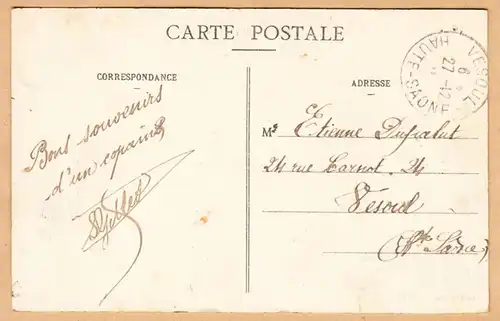 CARTE POSTALE
CORRESPONDANCE
ADRESSE
VESOUL
HAUTE-SAÔNE
6
27 -12
Bons souvenirs
d'un copain
Ms Etienne
24 rue Carnot. 24
Vesoul
(Hte Saône)